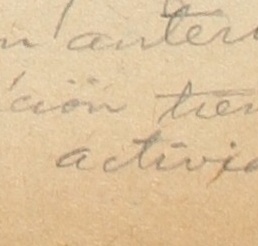 n anteri
ción tien
activid